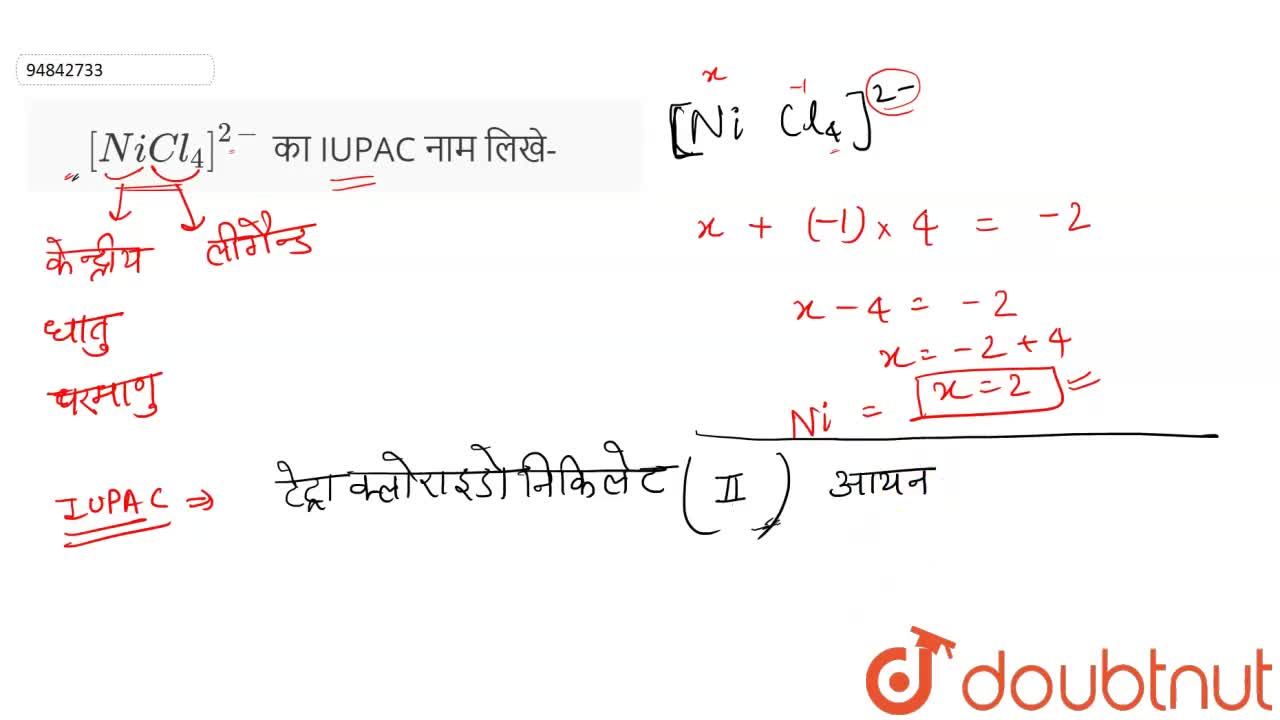 94842733
[NiCl4]2- का IUPAC नाम लिखे-
केन्द्रीय लीगैन्ड
धातु
परमाणु
x -1
[Ni Cl4]2-
x + (-1) × 4 = -2
x - 4 = -2
x = -2 + 4
Ni = x = 2
IUPAC ⇒ टेट्रा क्लोराइडो निकिलेट (II) आयन
doubtnut